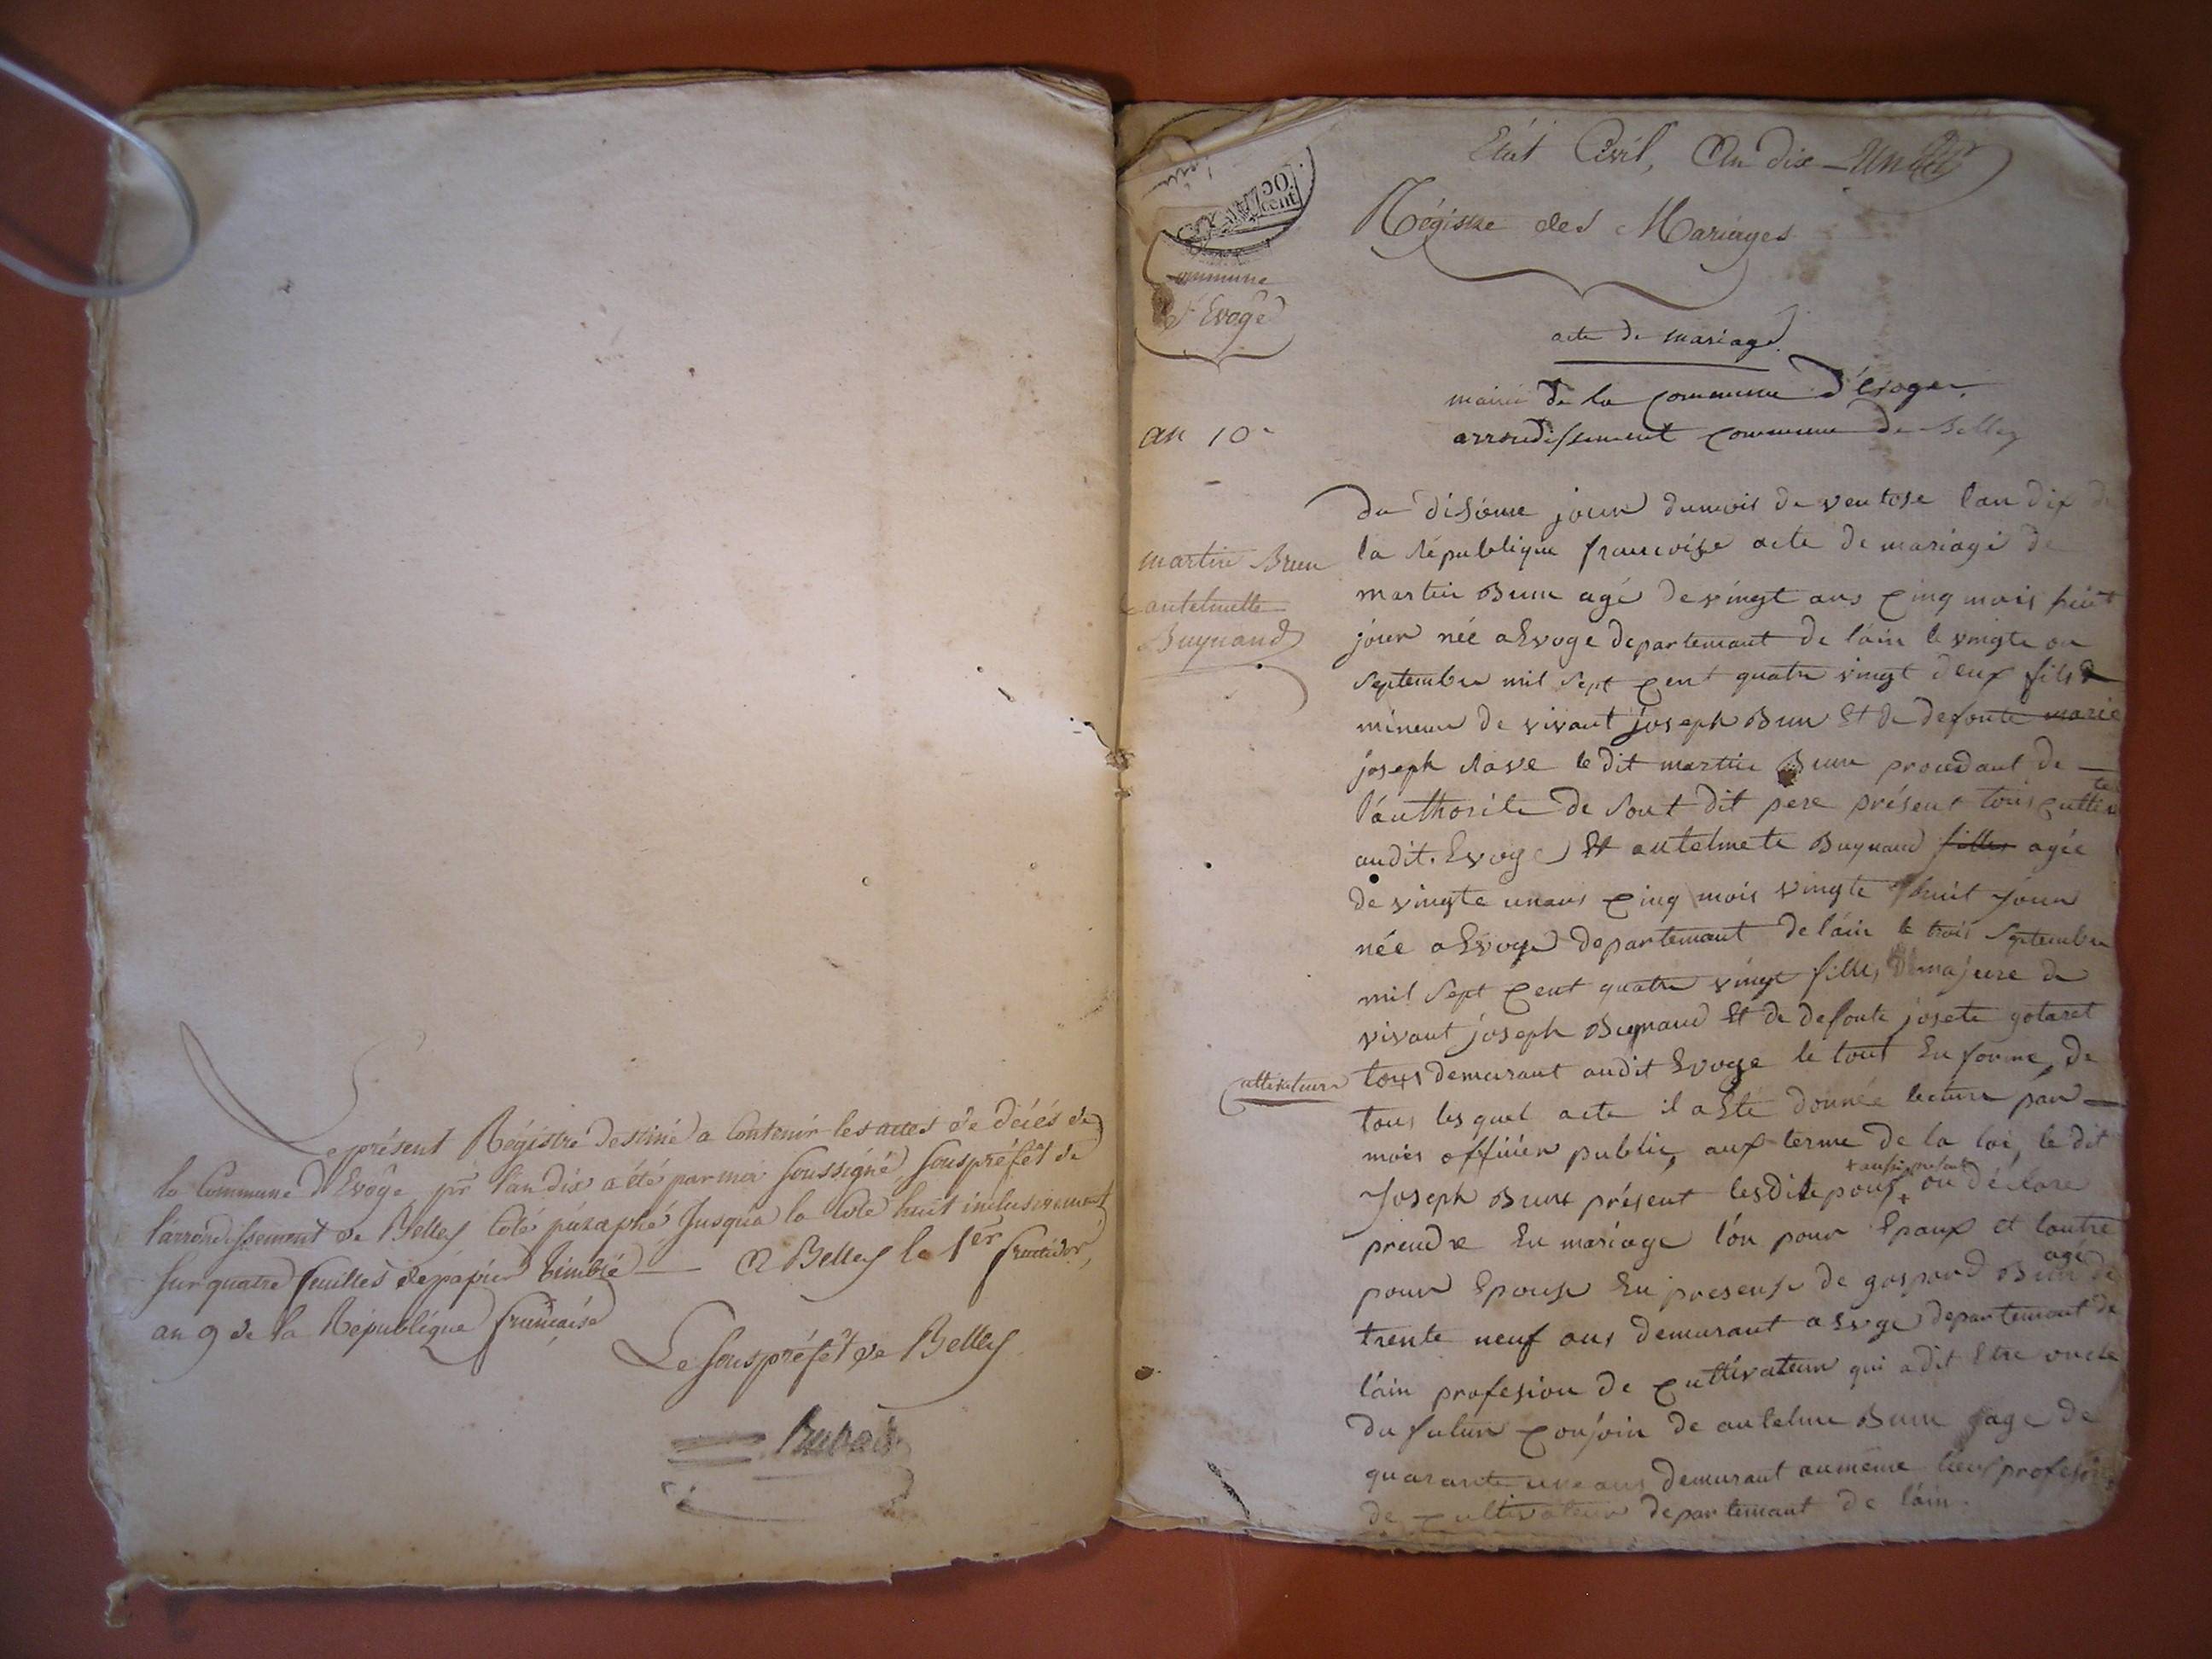 Le présent Régistre destiné a Contenir les actes de décés de
la Commune d'Evôge pr l'an dix a été par moi soussigné, souspréfêt de
l'arrondissement de Belley coté paraphé Jusqu'a la Cote huit inclusivement
sur quatre feuilles de papier timbré — A Belley le 1er fructidor,
an 9 de la République française
Le souspréfêt de Belley
Etat Civil, An dix
Régistre des Mariages
Commune
d'Evoge
acte de mariage
mairie de la commune d'Evoge
arrondissement commune de Belley
an 10e
martin Brun
antelmette
Buynand
Du disieme jour du mois de ventose l'an dix de
la république francoise acte de mariage de
martin Brun agé de vingt ans cinq mois huit
jour née a Evoge departemant de l'ain le vingte
septembre mil sept cent quatre vingt deux fils
mineur de vivant joseph Brun Et de defonte marie
joseph le dit martin Brun procedant de
l'authorite de sont dit pere présent tous
audit Evoge Et antelmete Buynand filles agée
de vingte un ans cinq mois vingte huit jour
née a Evoge departemant de l'ain le trois septembre
mil sept cent quatre vingt filles majeure de
vivant joseph Buynand Et de defonte josete gotaret
tous demurant audit Evoge le tout En forme, de
tous lesquel acte il a Eté donnée lecture par
mois officier public, aux terme de la loi, le dit
Joseph Brun présent lesdite ont déclare
aussi présent
prendre En mariage l'on pour Epoux et l'autre
pour Epouse En presense de gaspard Brun agé de
trente neuf ans demurant a Evoge departemant de
l'ain profesion de cultivateur qui a dit Etre oncle
du futur conjoin de antelme Brun age de
quarante une ans demurant au même lieu profesion
de cultivateur departemant de l'ain.